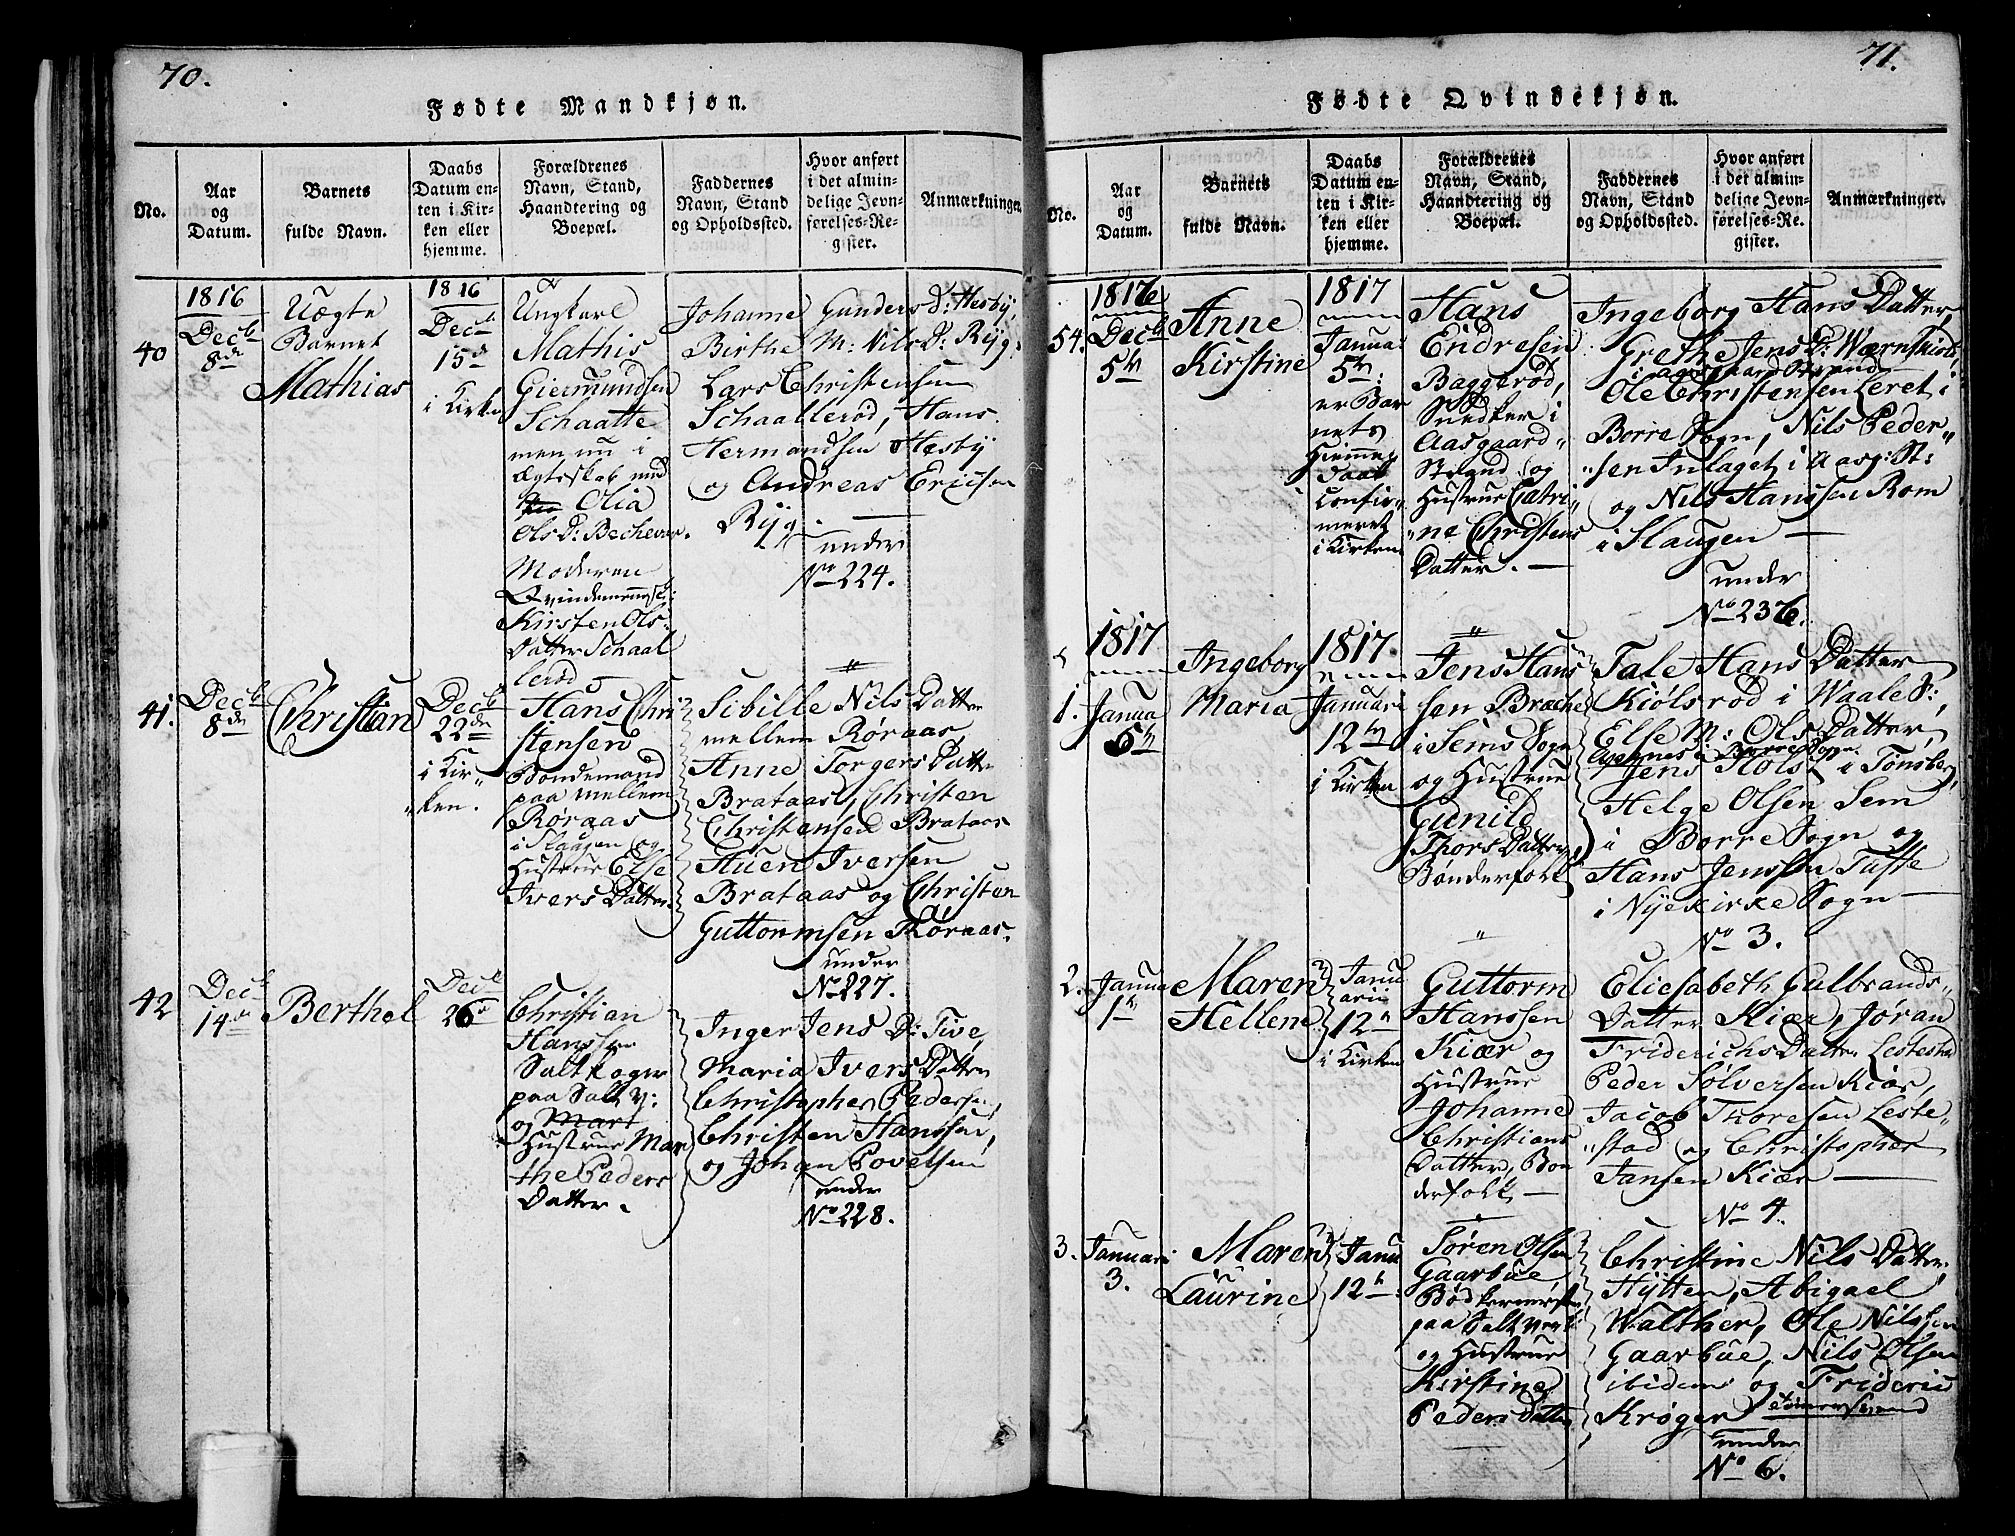 70.
Fødte Mandkjøn.
No.
Aar
og
Datum.
Barnets
fulde Navn.
Daabs
Datum en-
ten i Kir-
ken eller
hjemme.
Forældrenes
Navn, Stand,
Haandtering og
Boepæl.
Faddernes
Navn, Stand
og Opholdssted.
Hvor anført
i det almin-
delige Jevn-
førelses-Re-
gister.
Anmærkninger.
40
1816
Decb
8de
Uægte
Barnet
Mathias
1816
Decb
15d
i Kirke
Ungkarl
Mathis
Giermundsen
Schaatte
men nu i
Ægteskab med
Olia
Ols D: Bechevar.
Moderen
Qvindemennesk:
Kirsten Ols-
Datter Schaal
lerød
Johanne Gunders D: Hesby,
Birthe M: Nils D: Ryg,
Lars Christensen
Schaallerød, Hans
Hermandsen Hesby
og Andreas Ericsen
Ryg.
under
No 224.
41.
Decb
8de
Christian
Decb
22de
i Kir-
ken.
Hans Chri
stensen
Bondemand
paa mellem
Røraas
i Slaugen og
Hustrue Else
Ivers Datter.
Sibille Nils Datter
mellem Røraas,
Anne Torgers Datte
Brataas, Christen
Christensen Brataas
Huen Iversen
Brataas og Christen
Guttormsen Røraas.
under
No 227.
42
Decb
14de
Berthel
Decb
26d
Christian
Hanssen
Saltkoger
paa Saltv:
og Mart
Hustrue Mar
the Peders
Datter.
Inger Jens D: Tive,
Maria Ivers Datter
Christopher Pedersen,
Christen Hanssen,
og Johan Povelsen
under
No 228.
71.
Fødte Qvindekjøn.
No.
Aar
og
Datum.
Barnets
fulde Navn.
Daabs
Datum en-
ten i Kir-
ken eller
hjemme.
Forældrenes
Navn, Stand,
Haandtering og
Boepæl.
Faddernes
Navn, Stand
og Opholdssted.
Hvor anført
i det almin-
delige Jevn-
førelses-Re-
gister.
Anmærkninger.
54.
1816
Decb
5th
Anne
Kirstine
1817
Janua:
5th:
er Bar
nets
Hiemme
daab
confir-
meret
i Kirken
Hans
Endresen
Baggerød,
Snedker i
Aasgaard-
Strand og
Hustrue Catri-
ne Christens
Datter.
Ingeborg Hans Datter,
Grethe Jens D: Wærnskiold
i Aasgaard Strand
Ole Christensen Leret i
Borre Sogn, Nils Peder-
sen Inlaget i Aasg: St:
og Nils Hanssen Rom
i Slaugen
under
No 236.
1817
1.
Janua
5th
Ingeborg
Maria
1817.
Januari
12th
i Kirken
Jens Hans
sen Bræche
i Sems Sogn
og Hustrue
Gunild
Thors Datter
Bønderfolk
Tale Hans Datter
Kiølsrød i Waale S:,
Else M: Ols Datter,
i Borre Sogn.
Jens Holst i Tønsberg,
Helge Olsen Sem
i Borre Sogn og
Hans Jenssen Tufte
i Nyekirke Sogn
No 3.
2.
Janua
1th
Maren
Hellene
Janu
arii
12th
i Kirken
Guttorm
Hanssen
Kiær og
Hustrue
Johanne
Christians
Datter, Bon
derfolk
Eliesabeth Gulbrands-
Datter Kiær, Jøran
Friderichs Datter Lestestad
Peder Sølversen Kiær,
Jacob Thoresen Leste-
stad og Christopher
Jansen Kiær
No 4.
3.
Januari
3.
Maren
Laurine
Janu
12th
Søren Olsen
Gaarbue
Bødkermest
paa Saltverk
og Hustrue
Kirstine
Peders Datter
Christine Nils Datter
Hytten, Abigael
Walther, Ole Nilssen
Gaarbue, Nils Olsen
ibidem og Frideric
Krøger
under
No 6.